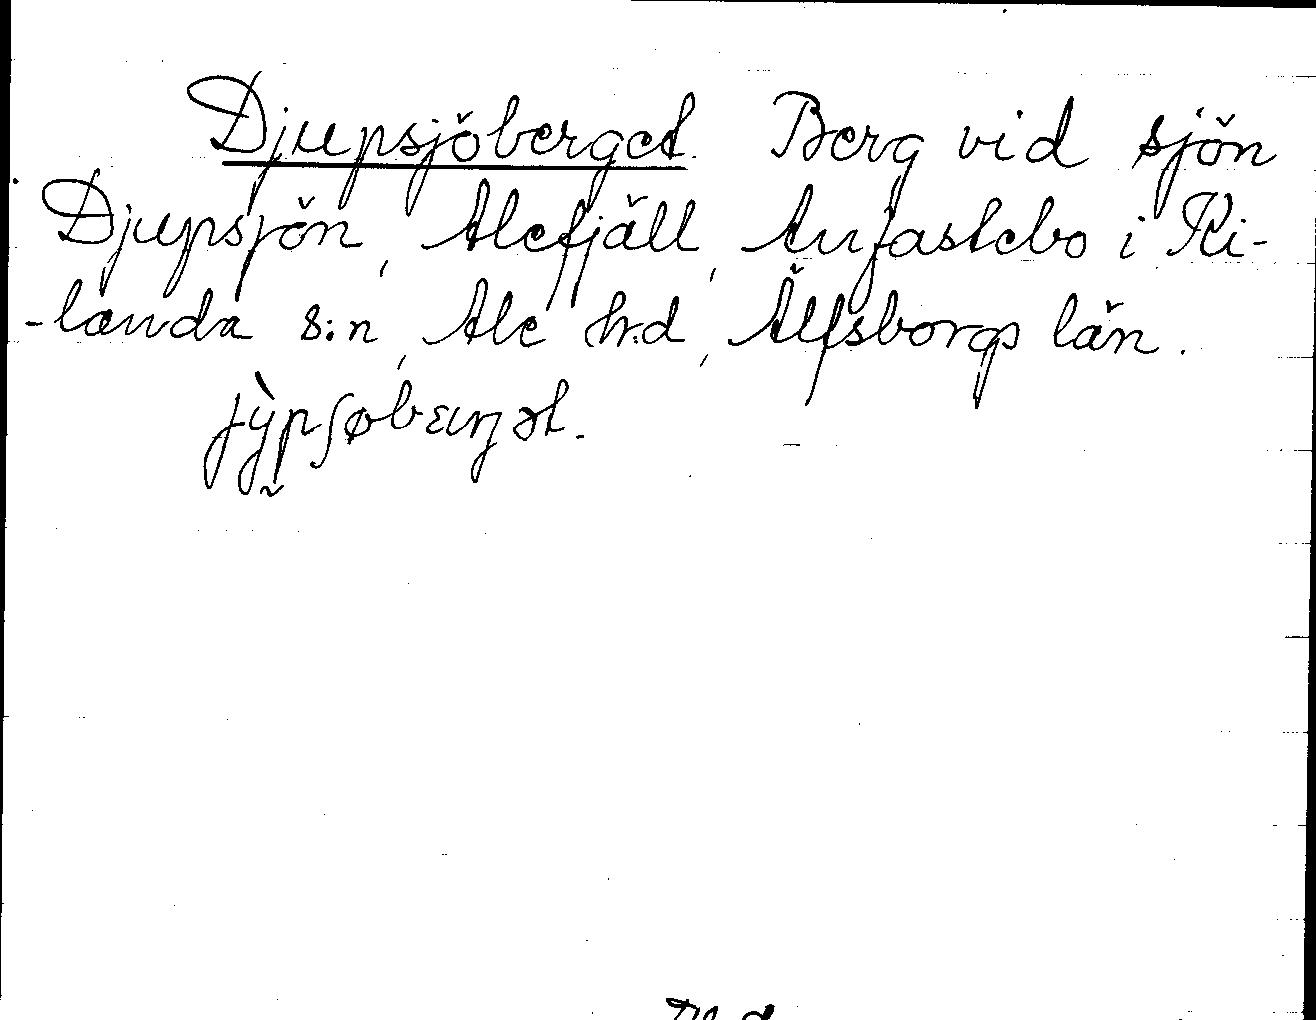 Djupsjöberget. Berg vid sjön
Djupsjön, Alefjäll, Anfastebo i Ki-
-landa s:n, Ale h:d, Älfsborgs län.